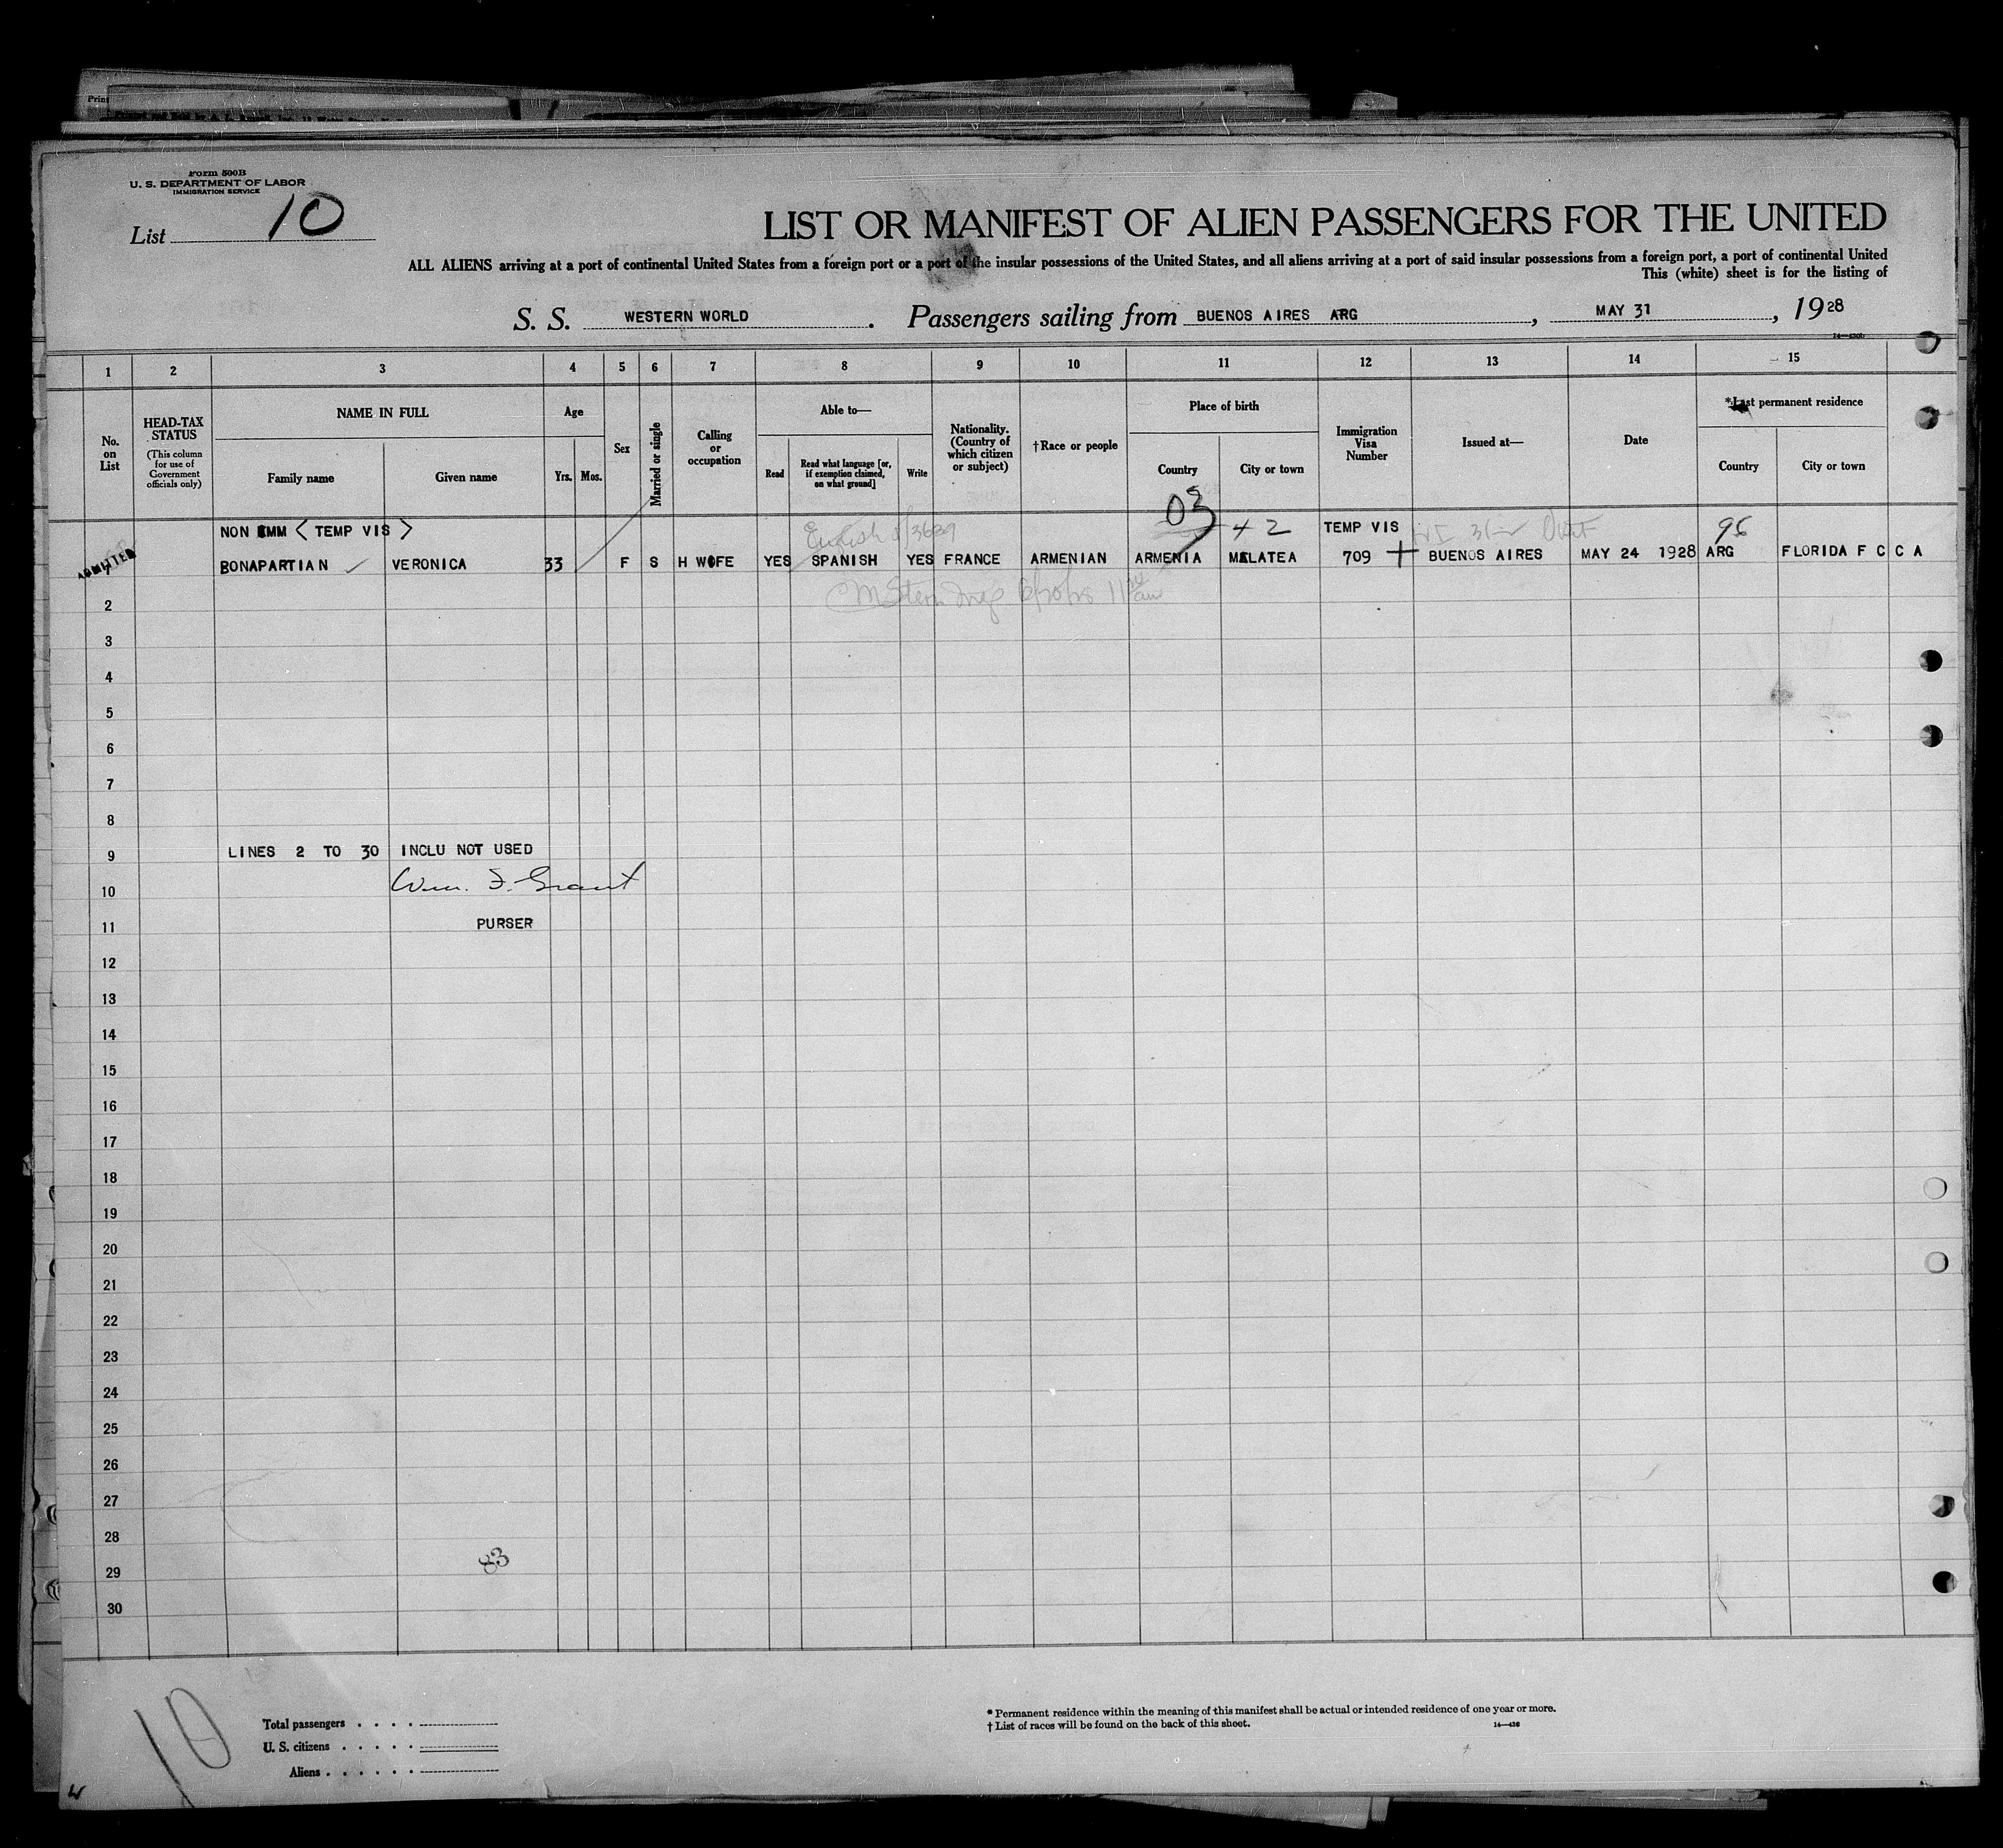 Form 500B
U. S. DEPARTMENT OF LABOR
IMMIGRATION SERVICE
List 10
LIST OR MANIFEST OF ALIEN PASSENGERS FOR THE UNITED
ALL ALIENS arriving at a port of continental United States from a foreign port or a port of the insular possessions of the United States, and all aliens arriving at a port of said insular possessions from a foreign port, a port of continental United
This (white) sheet is for the listing of
S. S. WESTERN WORLD . Passengers sailing from BUENOS AIRES ARG , MAY 31 , 1928
1 2 3 4 5 6 7 8 9 10 11 12 13 14 15
No. on List
HEAD-TAX STATUS
(This column for use of Government officials only)
NAME IN FULL
Family name
Given name
Age
Yrs.
Mos.
Sex
Married or single
Calling or occupation
Able to—
Read
Read what language [or, if exemption claimed, on what ground]
Write
Nationality. (Country of which citizen or subject)
†Race or people
Place of birth
Country
City or town
Immigration Visa Number
Issued at—
Date
*Last permanent residence
Country
City or town
03
NON IMM ( TEMP VIS ) English + 2 TEMP VIS 95
ADMITTED BONAPARTIAN VERONICA 33 F S H WIFE YES SPANISH YES FRANCE ARMENIAN ARMENIA MALATEA 709 + BUENOS AIRES MAY 24 1928 ARG FLORIDA F C C A
2
3
4
5
6
7
8
9 LINES 2 TO 30 INCLU NOT USED
10 Wm. F. Grant
11 PURSER
12
13
14
15
16
17
18
19
20
21
22
23
24
25
26
27
28
83
29
30
10
Total passengers
U. S. citizens
Aliens
* Permanent residence within the meaning of this manifest shall be actual or intended residence of one year or more.
† List of races will be found on the back of this sheet.
14—430
W